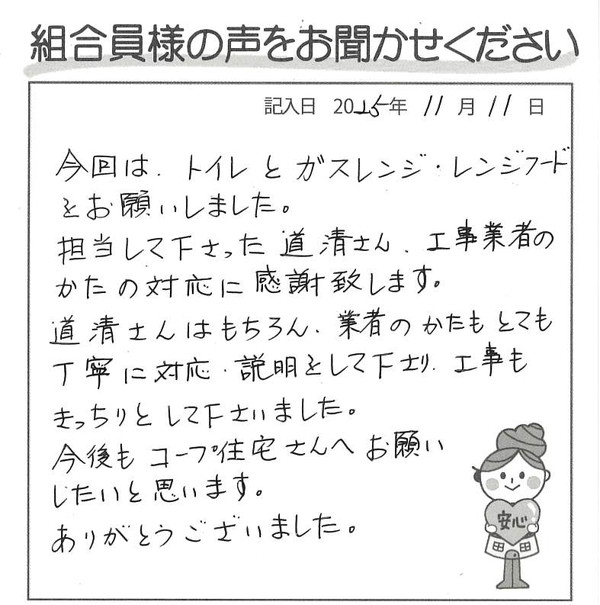 組合員様の声をお聞かせください
記入日 2015年 11月 11日
今回は、トイレとガスレンジ・レンジフード
をお願いしました。
担当して下さった道清さん、工事業者の
かたの対応に感謝致します。
道清さんはもちろん、業者のかたもとても
丁寧に対応・説明をして下さり、工事も
きっちりとして下さいました。
今後もコープ住宅さんへお願い
したいと思います。
ありがとうございました。
安心